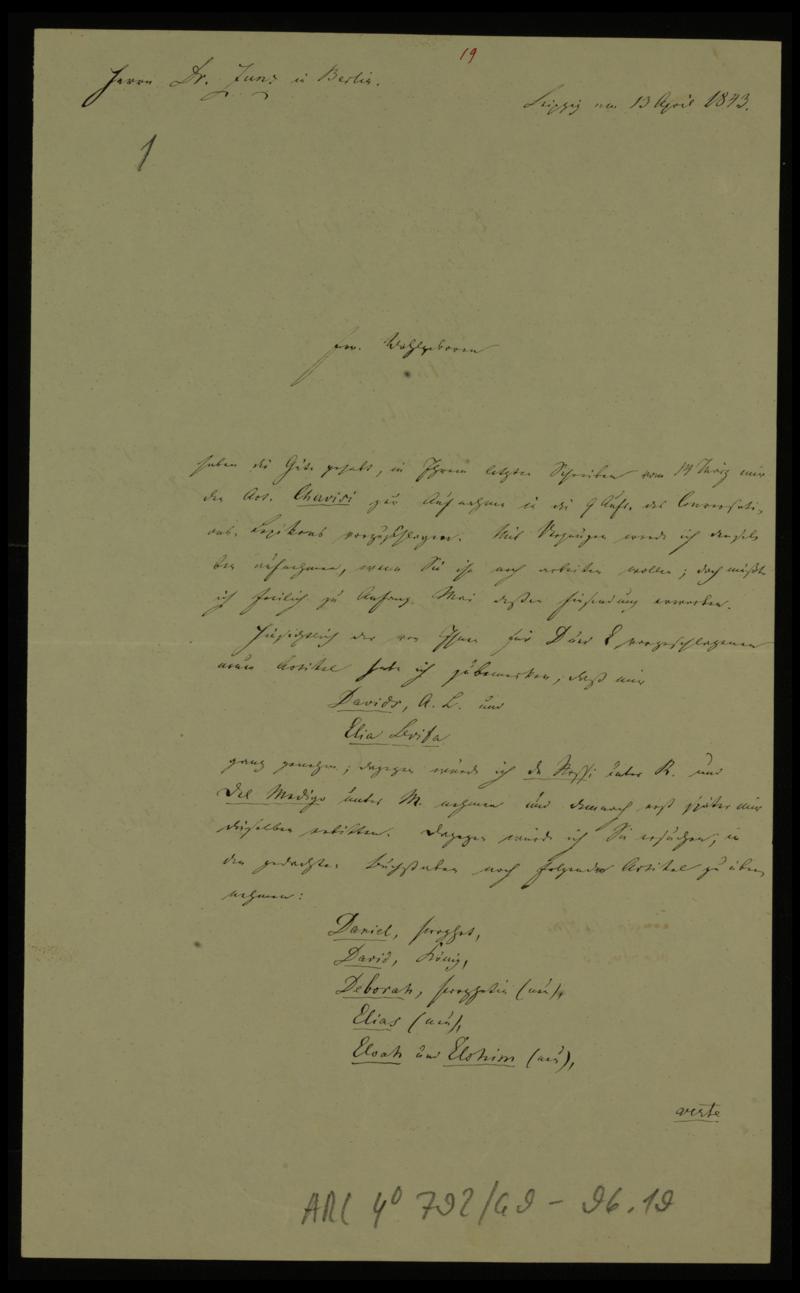 19
Herrn Dr. Zunz in Berlin.
Leipzig am 13 April 1843.
1
Ew. Wohlgeboren
haben die Güte gehabt, in Ihrem letzten Schreiben vom 14 März mir
den Art. Charisi zur Aufnahme in die 9 Aufl. des Conversati-
ons-Lexikons vorzuschlagen. Mit Vergnügen werde ich densel-
ben aufnehmen, wenn Sie ihn noch arbeiten wollen; doch müßte
ich freilich zu Anfang Mai dessen Zusendung erwarten.
Hinsichtlich der von Ihnen für D und E vorgeschlagenen
neuen Artikel habe ich zu bemerken, daß mir
Davids, A. L. und
Elia Levita
ganz genehm; dagegen würde ich de Rossi unter R. und
Del Medigo unter M. nehmen und demnach erst später mir
dieselben erbitten. Dagegen würde ich Sie ersuchen, in
den gedachten Buchstaben noch folgende Artikel zu über-
nehmen:
Daniel, Prophet,
David, König,
Deborah, Prophetin (neu),
Elias (neu),
Eloah und Elohim (neu),
verte
ARC 4° 792/G9 - 26.19